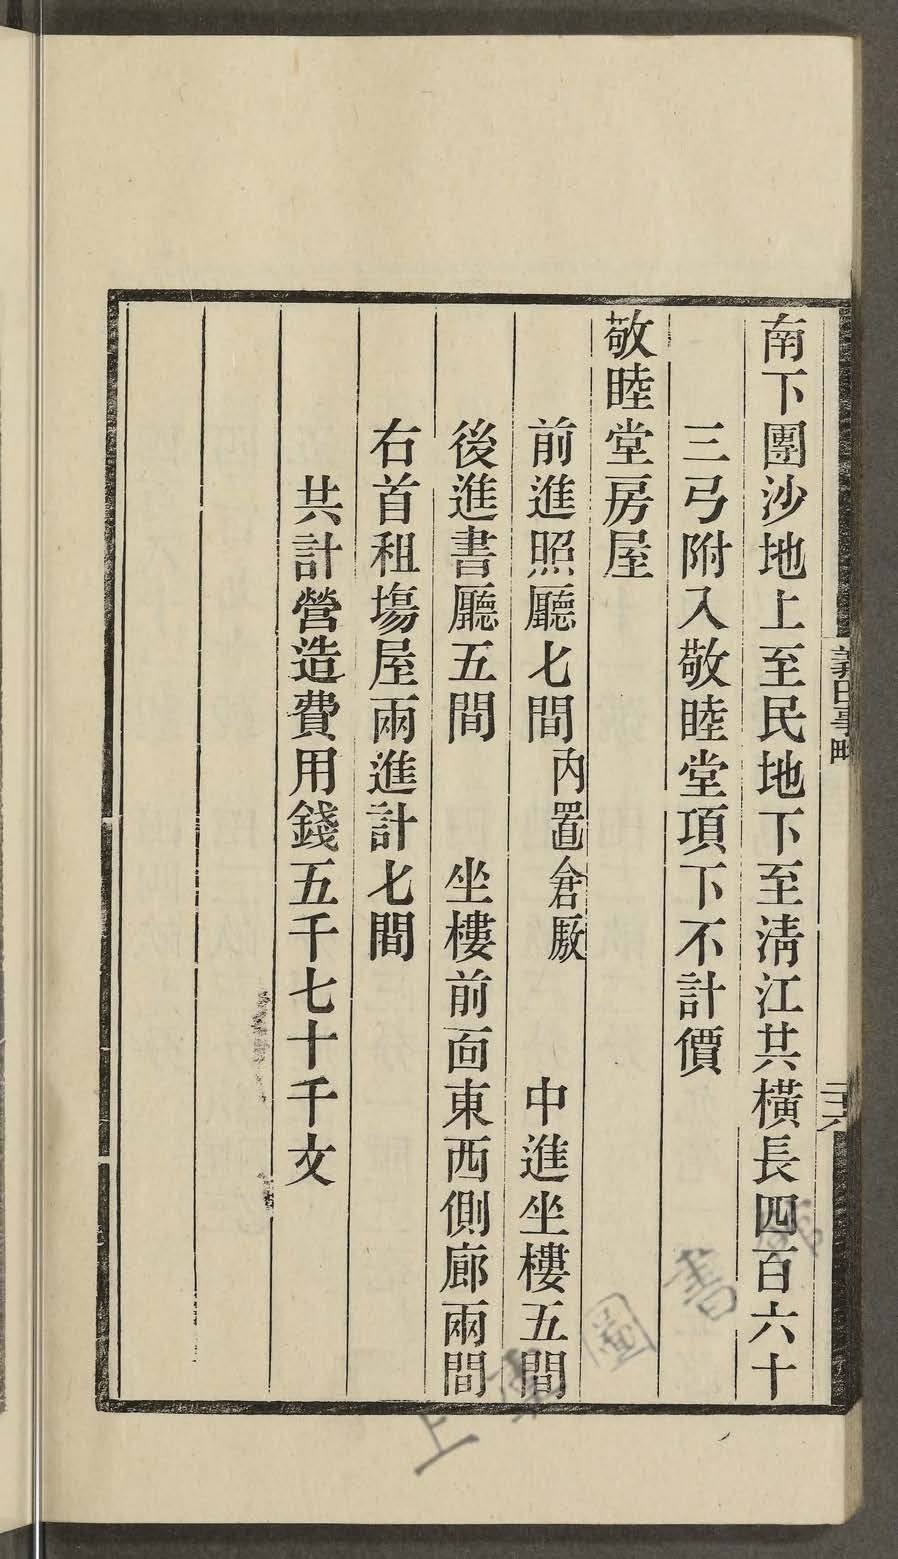 南下團沙地上至民地下至淸江共橫長四百六十
三弓附入敬睦堂項下不計價
敬睦堂房屋
前進照廳七間內置倉厫　中進坐樓五間
後進書廳五間　坐樓前面東西側廊兩間
右首租塲屋兩進計七間
共計營造費用錢五千七十千文
上圖書館